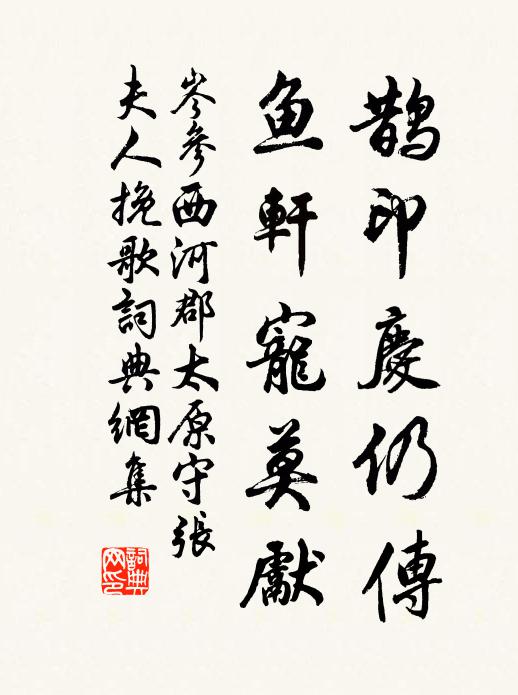 鵲印慶仍傳
魚軒寵莫獻
岑參西河郡太原守張
夫人挽歌詞典網集
詞典網印